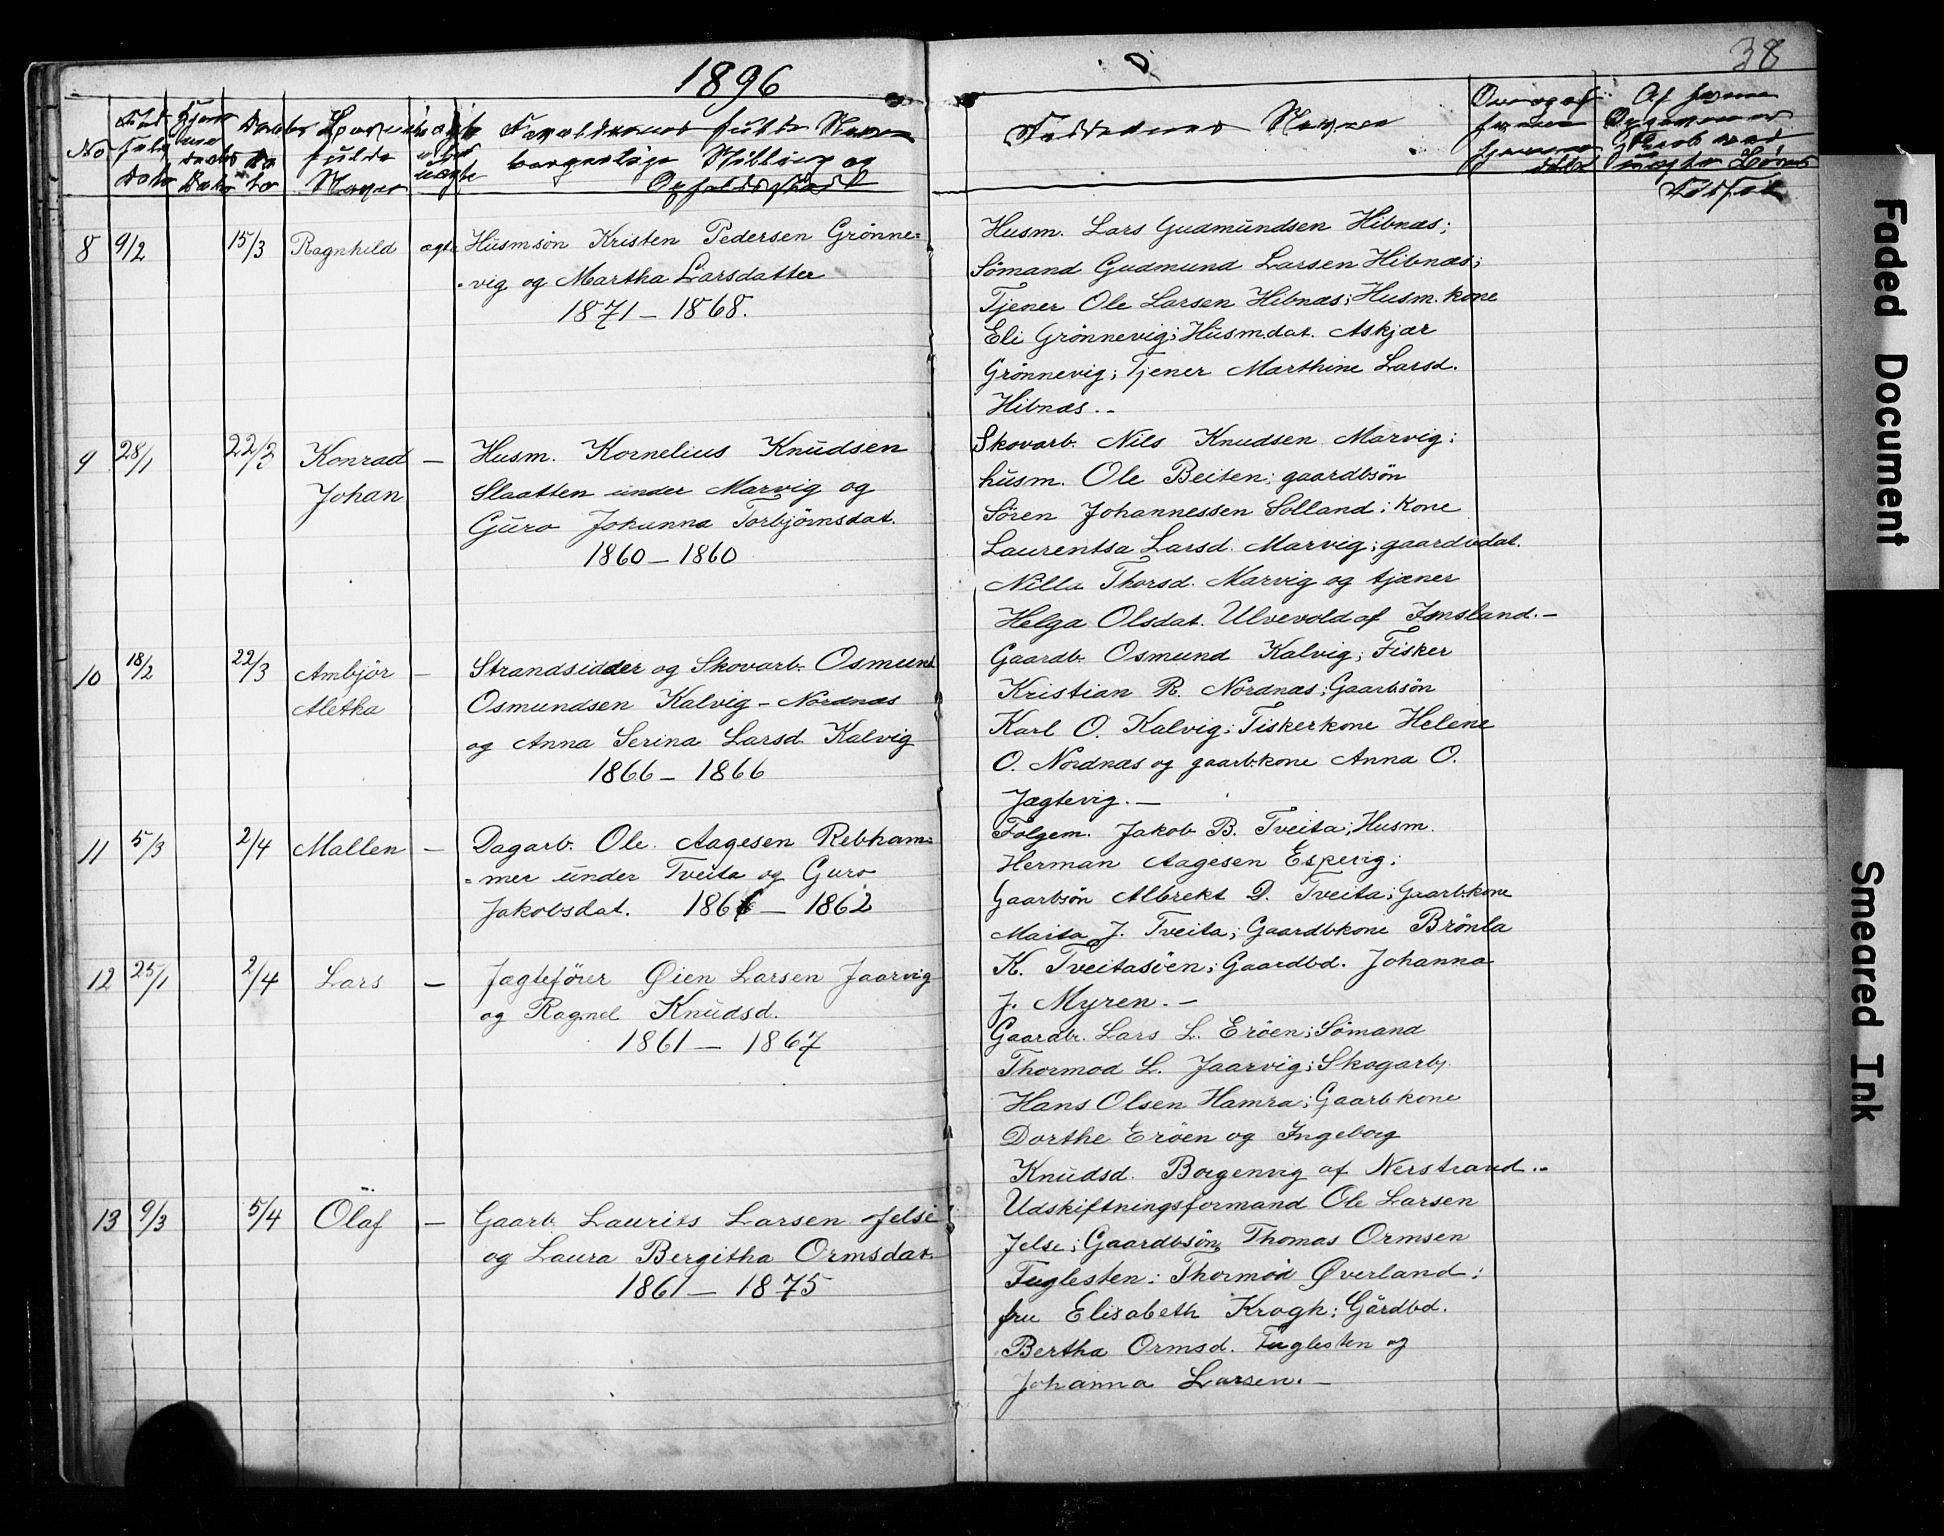 1896
38
No
Fødselsdato
Hjemmedaabs Dato
Daabs Dato
Barnets fulde Navn
ægte eller uægte
Forældrenes fulde Navn
borgerlige Stilling og
Opholdssted
Faddernes Navne
8 9/2 15/3 Ragnhild ægte Husmsön Kristen Pedersen Grönne=
vig og Martha Larsdatter
1871 – 1868.
Husm. Lars Gudmundsen Hibnæs;
Sömand Gudmund Larsen Hibnæs;
Tjener Ole Larsen Hibnæs; Husm. kone
Eli Grönnevig; Husmdat. Askjær
Grönnevig; Tjener Marthine Larsd.
Hibnæs. -
9 28/1 22/3 Konrad – Husm. Kornelius Knudsen
Johan Slaatten under Marvig og
Guro Johanna Torbjörnsdat.
1860 – 1860
Skovarb. Nils Knudsen Marvig;
husm. Ole Beiten; gaardbsön
Sören Johannessen Solland; Kone
Laurentsa Larsd. Marvig; gaardbdat.
Nilla Thorsd. Marvig og tjæner
Helga Olsdat. Ulvevold af Imsland. –
10 18/2 22/3 Ambjör – Strandsidder og Skovarb. Osmund
Aletha Osmundsen Kalvig – Nordnæs
og Anna Serina Larsd. Kalvig
1866 – 1866
Gaardb. Osmund Kalvig; Fisker
Kristian R. Nordnæs; Gaarbsön
Karl O. Kalvig; Fiskerkone Helene
O. Nordnæs og gaarb.kone Anna O.
Jægtevig. –
11 5/3 2/4 Mallen – Dagarb. Ole Aagesen Rebham=
=mer under Tveita og Guro
Jakobsdat. 1861 – 1862
Folgem. Jakob B. Tveita; Husm.
Herman Aagesen Espevig;
Gaarbsön Albrekt D. Tveita; Gaarbkone
Maita J. Tveita; Gaardbkone Brönla
K. Tveitasöen; Gaardbd. Johanna
J. Myren. –
12 25/1 2/4 Lars – Jagteförer Øien Larsen Jaarvig
og Ragnel Knudsd.
1861 – 1867
Gaardbr. Lars L. Eröen; Sömand
Thormod L. Jaarvig; Skogarb.
Hans Olsen Hamra; Gaarbkone
Dorthe Eröen og Ingeborg
Knudsd. Borgenvig af Nerstrand. -
13 9/3 5/4 Olaf – Gaarb. Laurits Larsen Jelse
og Laura Bergitha Ormsdat.
1861 – 1875
Udskiftningsformand Ole Larsen
Jelse; Gaardbsön Thomas Ormsen
Fuglesten; Thormod Øverland;
fru Elisabeth Krogh; Gårdbd.
Bertha Ormsd. Fuglesten og
Johanna Larsen. –
Faded Document
Smeared Ink